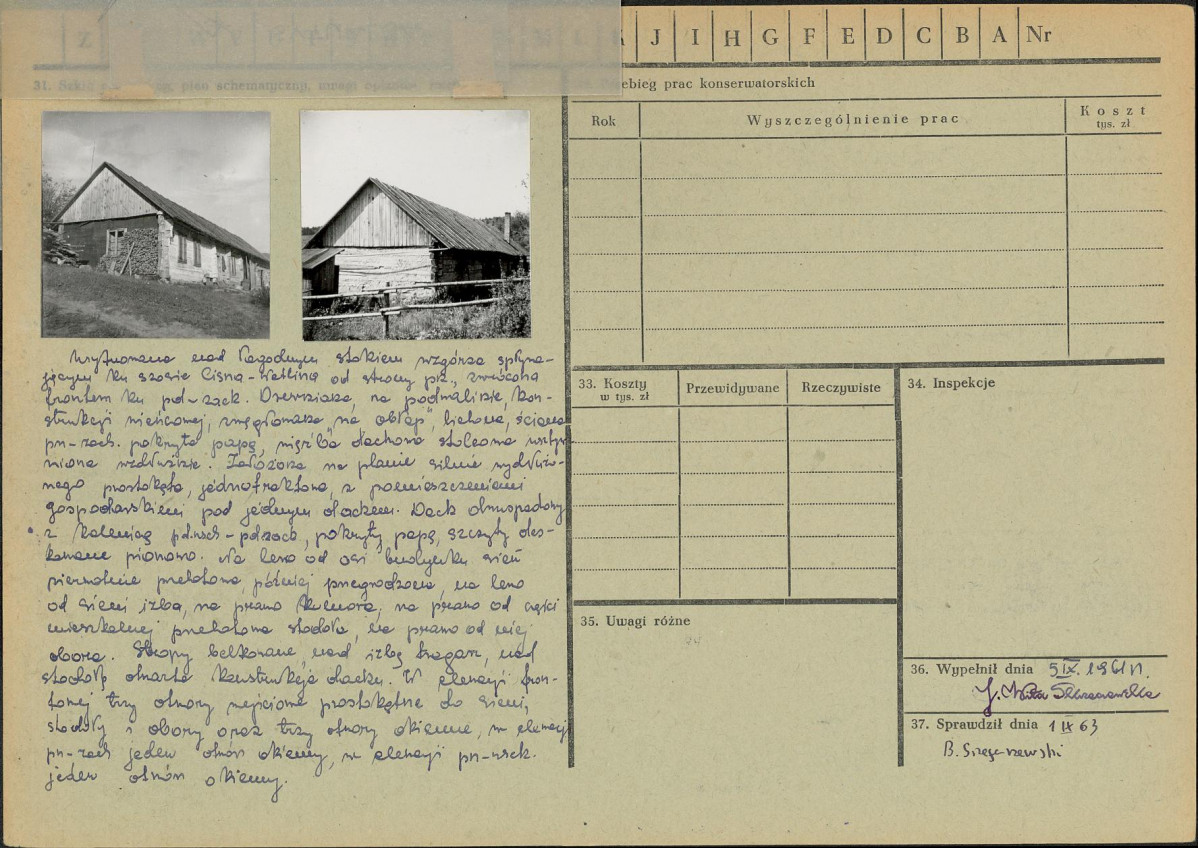 J I H G F E D C B A Nr
31.
Przebieg prac konserwatorskich
Rok
Wyszczególnienie prac
Koszt
tys. zł
Usytuowana nad łagodnym stokiem wzgórza spływa-
jącym ku szosie Cisna-Wetlina od strony płn., zwrócona
frontem ku płd-zach. Drewniana, na podmurówce, kon-
strukcji wieńcowej, węgłowana "na obłap", bielona, ściana
pn-zach. pokryta papą, więźba dachowa stolcowa
wzdłużnie. Założona na planie silnie wydłużo-
nego prostokąta, jednotraktowa, z pomieszczeniami
gospodarskimi pod jednym dachem. Dach dwuspadowy
z kalenicą, pokryty papą, szczyty des-
kowane pionowo. Na lewo od osi budynku sień
pierwotnie przelotowa, później przegrodzona, na lewo
od sieni izba, na prawo komora, na prawo od części
mieszkalnej przelotowa stodoła, na prawo od niej
obora. Stropy belkowane, nad izbą tragarz, nad
stodołą otwarta konstrukcja dachu. W elewacji fron-
towej trzy otwory wejściowe prostokątne do sieni,
stodoły i obory oraz trzy otwory okienne, w elewacji
pn-zach jeden otwór okienny, w elewacji pn-wsch.
jeden otwór okienny.
33. Koszty
w tys. zł
Przewidywane
Rzeczywiste
34. Inspekcje
35. Uwagi różne
36. Wypełnił dnia 5 IX. 1961 r.
37. Sprawdził dnia 1 IX 63